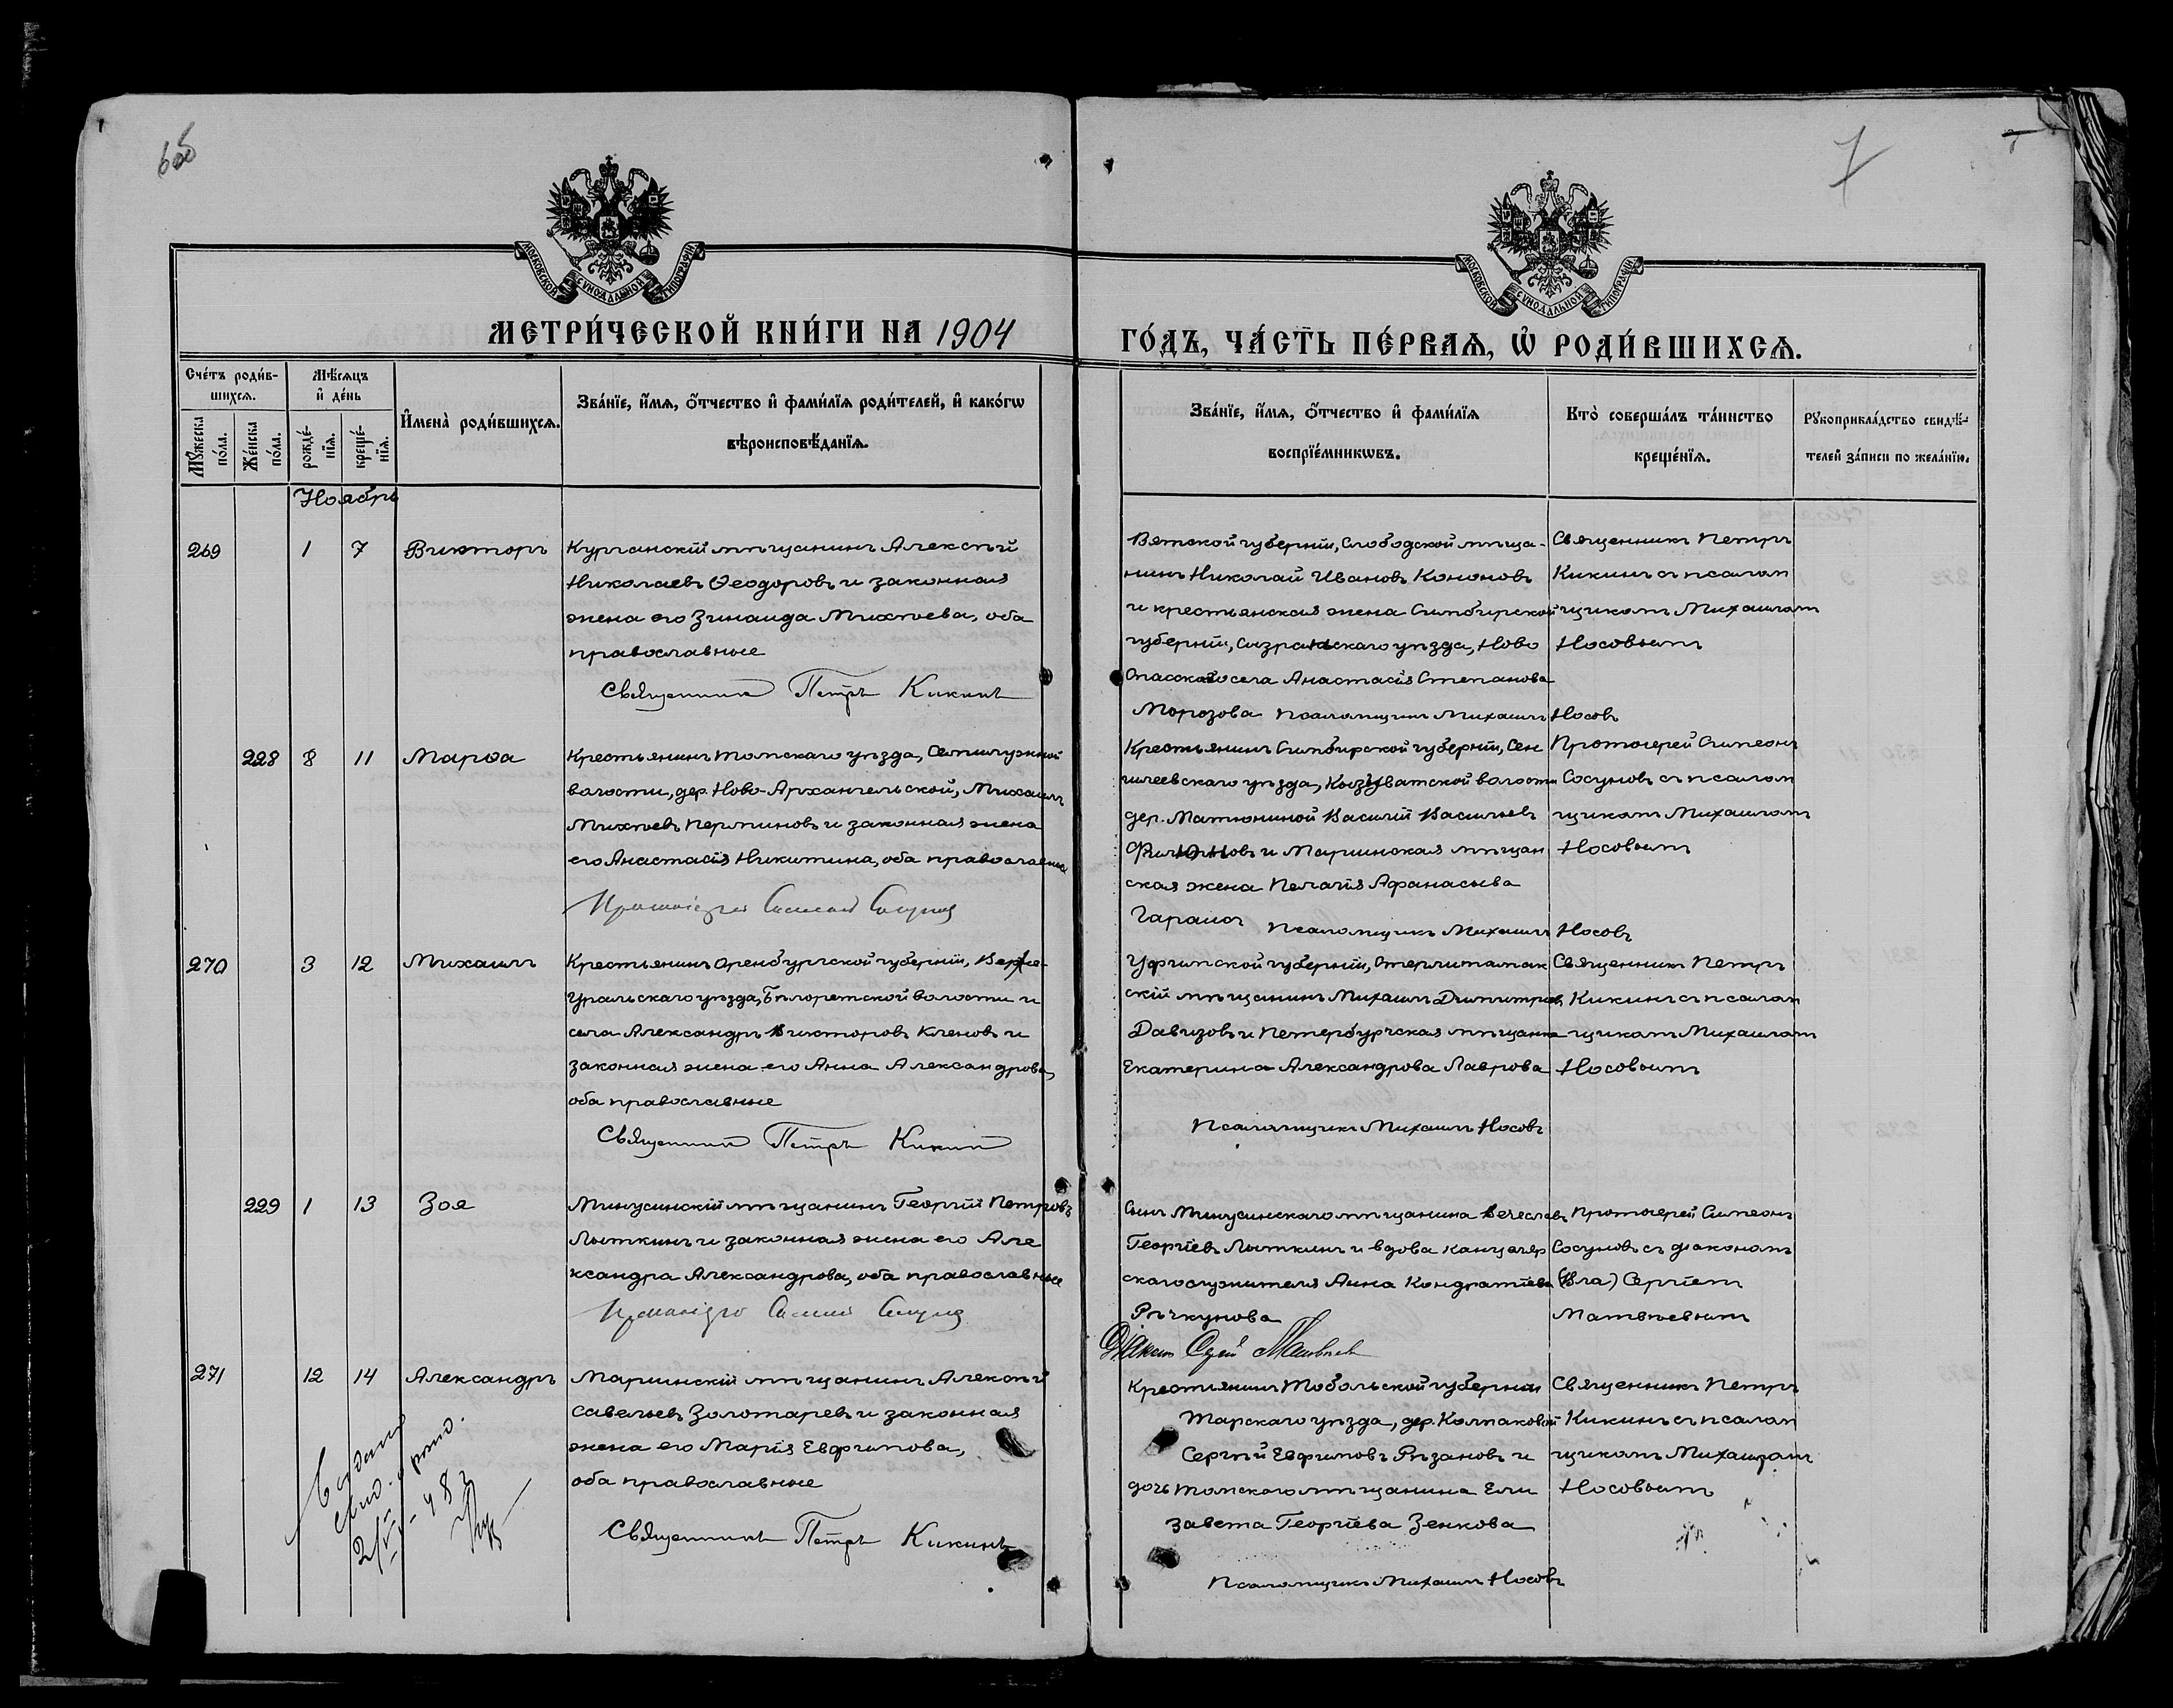 7
МОСКОВСКОЙ СѴНОДАЛЬНОЙ ТИПОГРАФІИ
МОСКОВСКОЙ СѴНОДАЛЬНОЙ ТИПОГРАФІИ
МЕТРИ́ЧЕСКОЙ КНИ́ГИ НА 1904
ГО́ДЪ, ЧА́СТЬ ПЕ́РВАѦ, Ѡ҆ РОДИ́ВШИХСѦ.
Сче́тъ роди́в-
шихсѧ.
Мꙋ́жеска по́ла.
Же́нска по́ла.
Мѣ́сѧцъ
и҆ де́нь
рожде́-
нїѧ.
креще́-
нїѧ.
И҆мена̀ роди́вшихсѧ.
Зва́нїе, и҆́мѧ, ѻ҆́тчество и҆ фами́лїѧ роди́телей, и҆ како́гѡ
вѣроисповѣ́данїѧ.
Зва́нїе, и҆́мѧ, ѻ҆́тчество и҆ фами́лїѧ
воспрїе́мникѡвъ.
Кто̀ соверша́лъ та́инство
креще́нїѧ.
Рꙋкоприкла́дство свидѣ́-
телей за́писи по жела́нїю.
Ноябрь
269
1
7
Викторъ
Курганскій мѣщанинъ Алексѣй
Николаевъ Ѳеодоровъ и законная
жена его Зинаида Михѣева, оба
православные
Священникъ Петръ Кикинъ
Вятской губерніи, Слободской мѣща-
нинъ Николай Ивановъ Кононовъ
и крестьянская жена Симбирской
губерніи, Сызранскаго уѣзда, Ново
Спасскаго села Анастасія Степанова
Морозова Псаломщикъ Михаилъ Носовъ
Священникъ Петръ
Кикинъ съ псалом
щикомъ Михаиломъ
Носовымъ
228
8
11
Марѳа
Крестьянинъ Томскаго уѣзда, Семилужной
волости, дер. Ново-Архангельской, Михаилъ
Михѣевъ Перминовъ и законная жена
его Анастасія Никитина, оба православные
Протоіерей Симеонъ Сосуновъ
Крестьянинъ Симбирской губерніи, Сен
гилеевскаго уѣзда, Кызуватской волости
дер. Матюниной Василій Васильевъ
Филюновъ и Маріинская мѣщан
ская жена Пелагія Афанасьева
Гарамоъ Псаломщикъ Михаилъ Носовъ
Протоіерей Симеонъ
Сосуновъ съ псалом
щикомъ Михаиломъ
Носовымъ
270
3
12
Михаилъ
Крестьянинъ Оренбургской губерніи, Верхне-
уральскаго уѣзда, Бѣлорѣтской волости и
села Александръ Викторовъ Кленовъ и
законная жена его Анна Александрова,
оба православные
Священникъ Петръ Кикинъ
Уфимской губерніи, Стерлитамак
скій мѣщанинъ Михаилъ Димитріев
Давизовъ и Петербургская мѣщанка
Екатерина Александрова Лаврова
Псаломщикъ Михаилъ Носовъ
Священникъ Петръ
Кикинъ съ псалом
щикомъ Михаиломъ
Носовымъ
229
1
13
Зоя
Минусинскій мѣщанинъ Георгій Петровъ
Лыткинъ и законная жена его Але
ксандра Александрова, оба православные
Протоіерей Симеонъ Сосуновъ
Сынъ Минусинскаго мѣщанина Вечеславъ
Георгіевъ Лыткинъ и вдова канцеляр
скаго служителя Анна Кондратіева
Рѣчкунова
Діаконъ Сергій Матвѣевъ
Протоіерей Симеонъ
Сосуновъ съ діакономъ
Сергіемъ
Матвѣевымъ
271
12
14
Александръ
Маріинскій мѣщанинъ Алексѣй
Савельевъ Золотаревъ и законная
жена его Марія Евфимова,
оба православные
Священникъ Петръ Кикинъ
Крестьянинъ Тобольской губерніи
Тарскаго уѣзда, дер. Колпаковой
Сергѣй Евфимовъ Рѣзановъ и
дочь томскаго мѣщанина Ели
завета Георгіева Зенкова
Псаломщикъ Михаилъ Носовъ
Священникъ Петръ
Кикинъ съ псалом
щикомъ Михаиломъ
Носовымъ